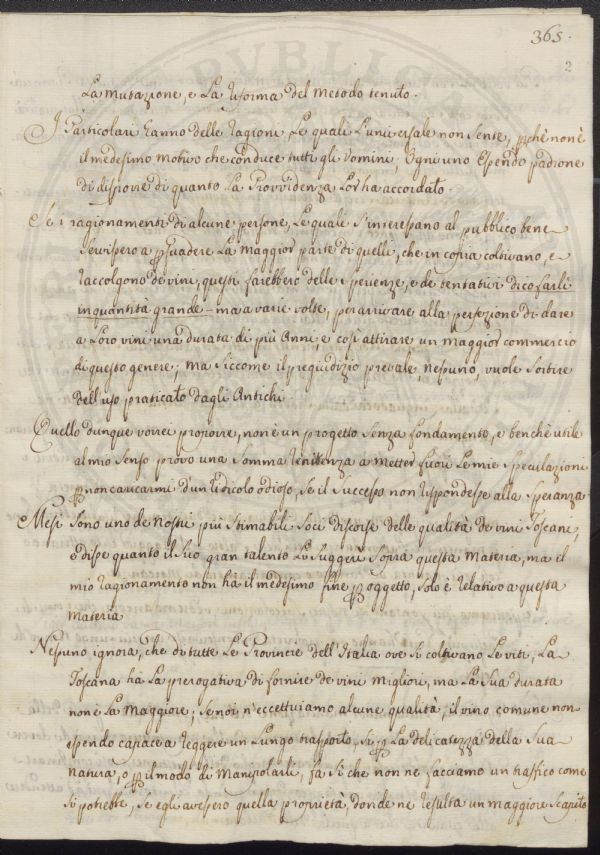 365.
2
La Mutazione, e La riforma del Metodo tenuto.
I Particolari hanno delle ragioni, Le quali L'universale non sente, p̱chè non è
il medesimo motivo che conduce tutti gli Uomini, Ogni uno essendo padrone
di disporre di quanto La Provvidenza Lor ha accordato.
Se i ragionamenti di alcune persone, Le quali s'interessano al pubblico bene
servissero a p̱suadere La Maggior parte di quelli, che in copia coltivano, e
raccolgono de vini, questi farebbero delle sperienze, e de tentativi di co farli
in quantità grande - ma a varie volte, per arrivare alla perfezione di dare
a Loro vini una durata di più Anni, e così attirare un maggior commercio
di questo genere; ma siccome il pregiudizio prevale, nessuno, vuole sortire
dell'uso praticato dagli Antichi
Quello dunque vorrei proporre, non è un progetto senza fondamento, e benchè utile
al mio senso provo una somma renitenza a metter fuori Le mie speculazioni
p̱ non caricarmi d'un ridicolo odioso, se il successo non rispondesse alla speranza.
Mesi sono uno de nostri più stimabili soci discorse delle qualità de vini Toscani,
e disse quanto il suo gran talento Lo suggerì sopra questa materia, ma el
mio ragionamento non hà il medesimo fine p̱ oggetto, solo è relativo a questa
materia
Nessuno ignora, che di tutte Le Provincie dell'Italia ove si coltivano Le viti, La
Toscana hà La prerogativa di fornire de vini migliori, ma La sua durata
non è La maggiore; se noi n'eccettuiamo alcune qualità, il vino comune non
essendo capace a reggere un Lungo trasporto, si p̱ La delicatezza della sua
natura, o p̱ il modo di manipolarli, fà si che non ne facciamo un traffico come
si potrebbe, se egli avessero quella proprietà, donde ne resulta un maggiore scapito